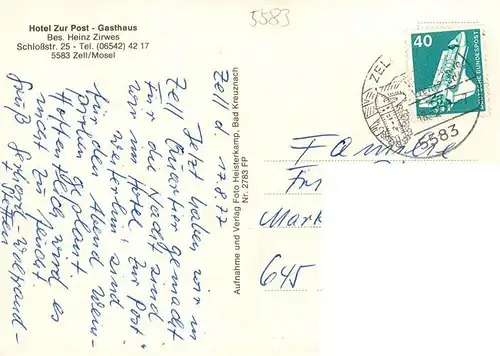 Hotel Zur Post - Gasthaus
Bes. Heinz Zirwes
Schloßstr. 25 - Tel. (06542) 42 17
5583 Zell/Mosel
5583
40
DEUTSCHE BUNDESPOST
ZELL
5583
Zell d. 17.8.77
Jetzt haben wir in
Zell Quartier gemacht
Für die Nacht sind
wir im Hotel "Zur Post"
weiterhin sind
für den Abend Wein-
proben geplant
Hoffentlich wird es
nicht zu feucht
Gruß Gerhart - Waltraud -
Aufnahme und Verlag Foto Heisterkamp, Bad Kreuznach
Nr. 2783 FP
Familie
Fri
Mark
645